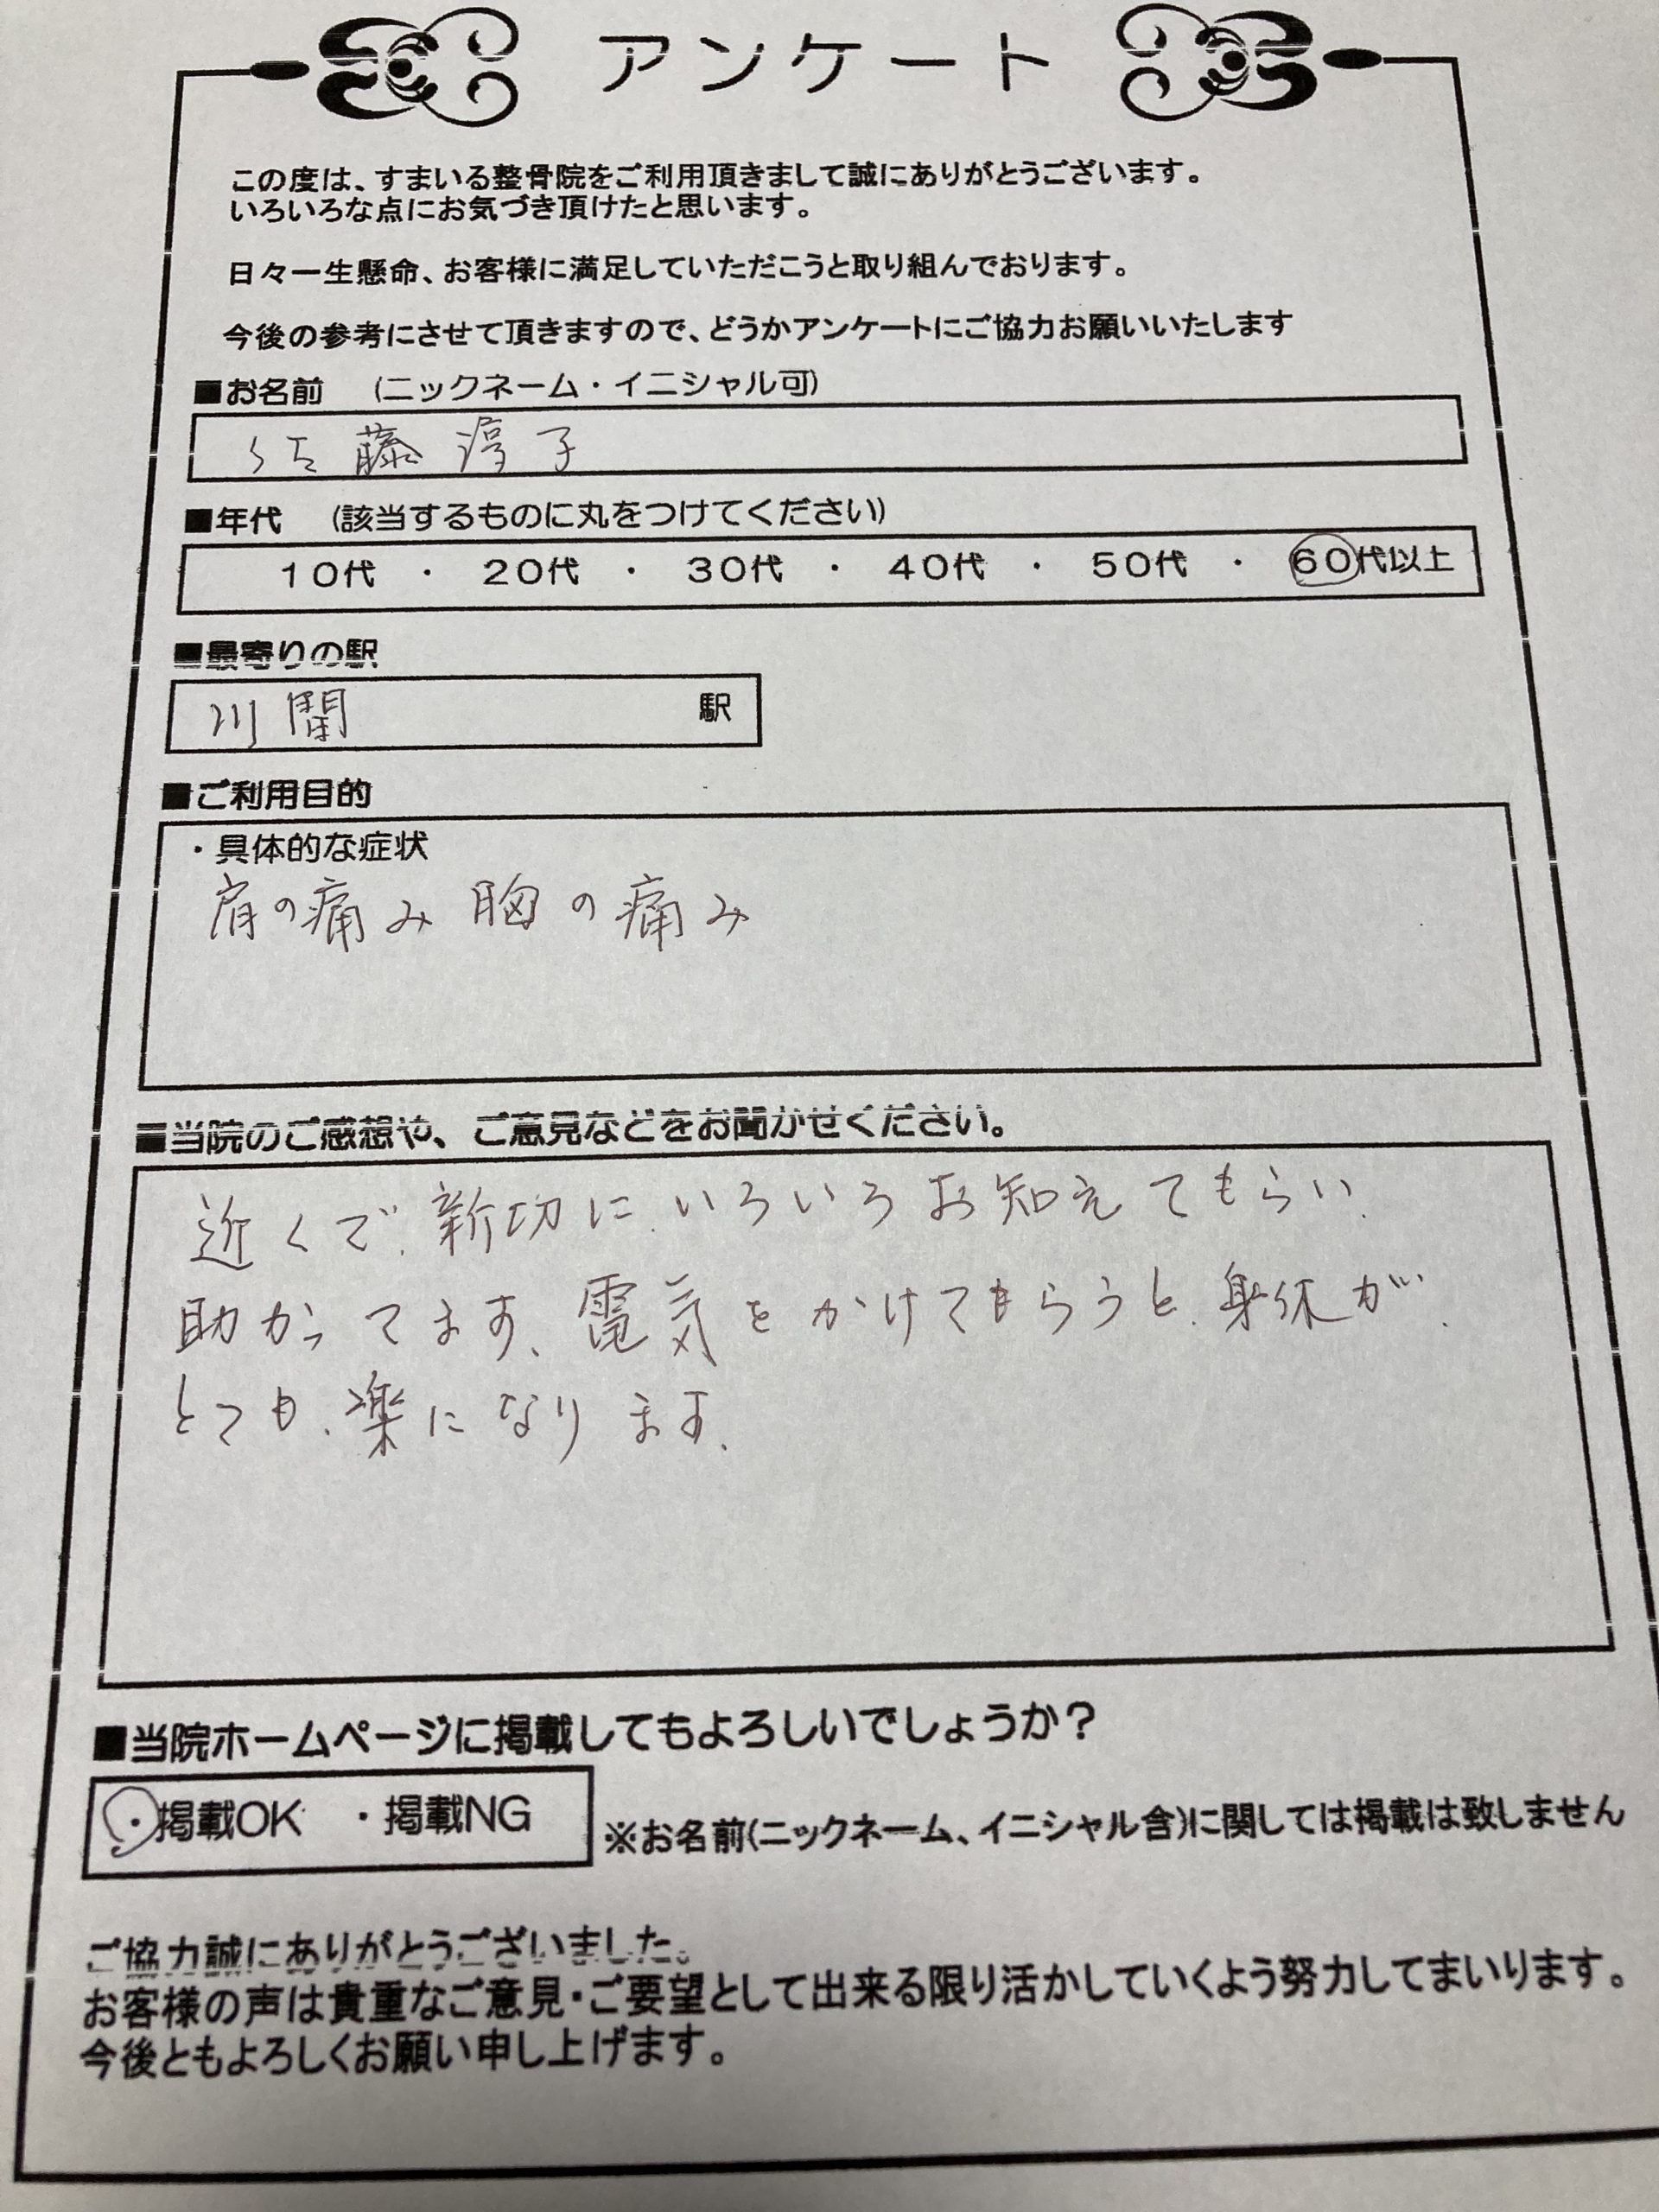 アンケート
この度は、すまいる整骨院をご利用頂きまして誠にありがとうございます。
いろいろな点にお気づき頂けたと思います。
日々一生懸命、お客様に満足していただこうと取り組んでおります。
今後の参考にさせて頂きますので、どうかアンケートにご協力お願いいたします
■お名前 (ニックネーム・イニシャル可)
佐藤淳子
■年代 (該当するものに丸をつけてください)
10代 ・ 20代 ・ 30代 ・ 40代 ・ 50代 ・ 60代以上
■最寄りの駅
川間 駅
■ご利用目的
・具体的な症状
肩の痛み 胸の痛み
■当院のご感想や、ご意見などをお聞かせください。
近くで、新切に、いろいろお知えてもらい、
助かってます、電気をかけてもらうと、身体が、
とても、楽になります、
■当院ホームページに掲載してもよろしいでしょうか？
・掲載OK ・掲載NG ※お名前(ニックネーム、イニシャル含)に関しては掲載は致しません
ご協力誠にありがとうございました。
お客様の声は貴重なご意見・ご要望として出来る限り活かしていくよう努力してまいります。
今後ともよろしくお願い申し上げます。